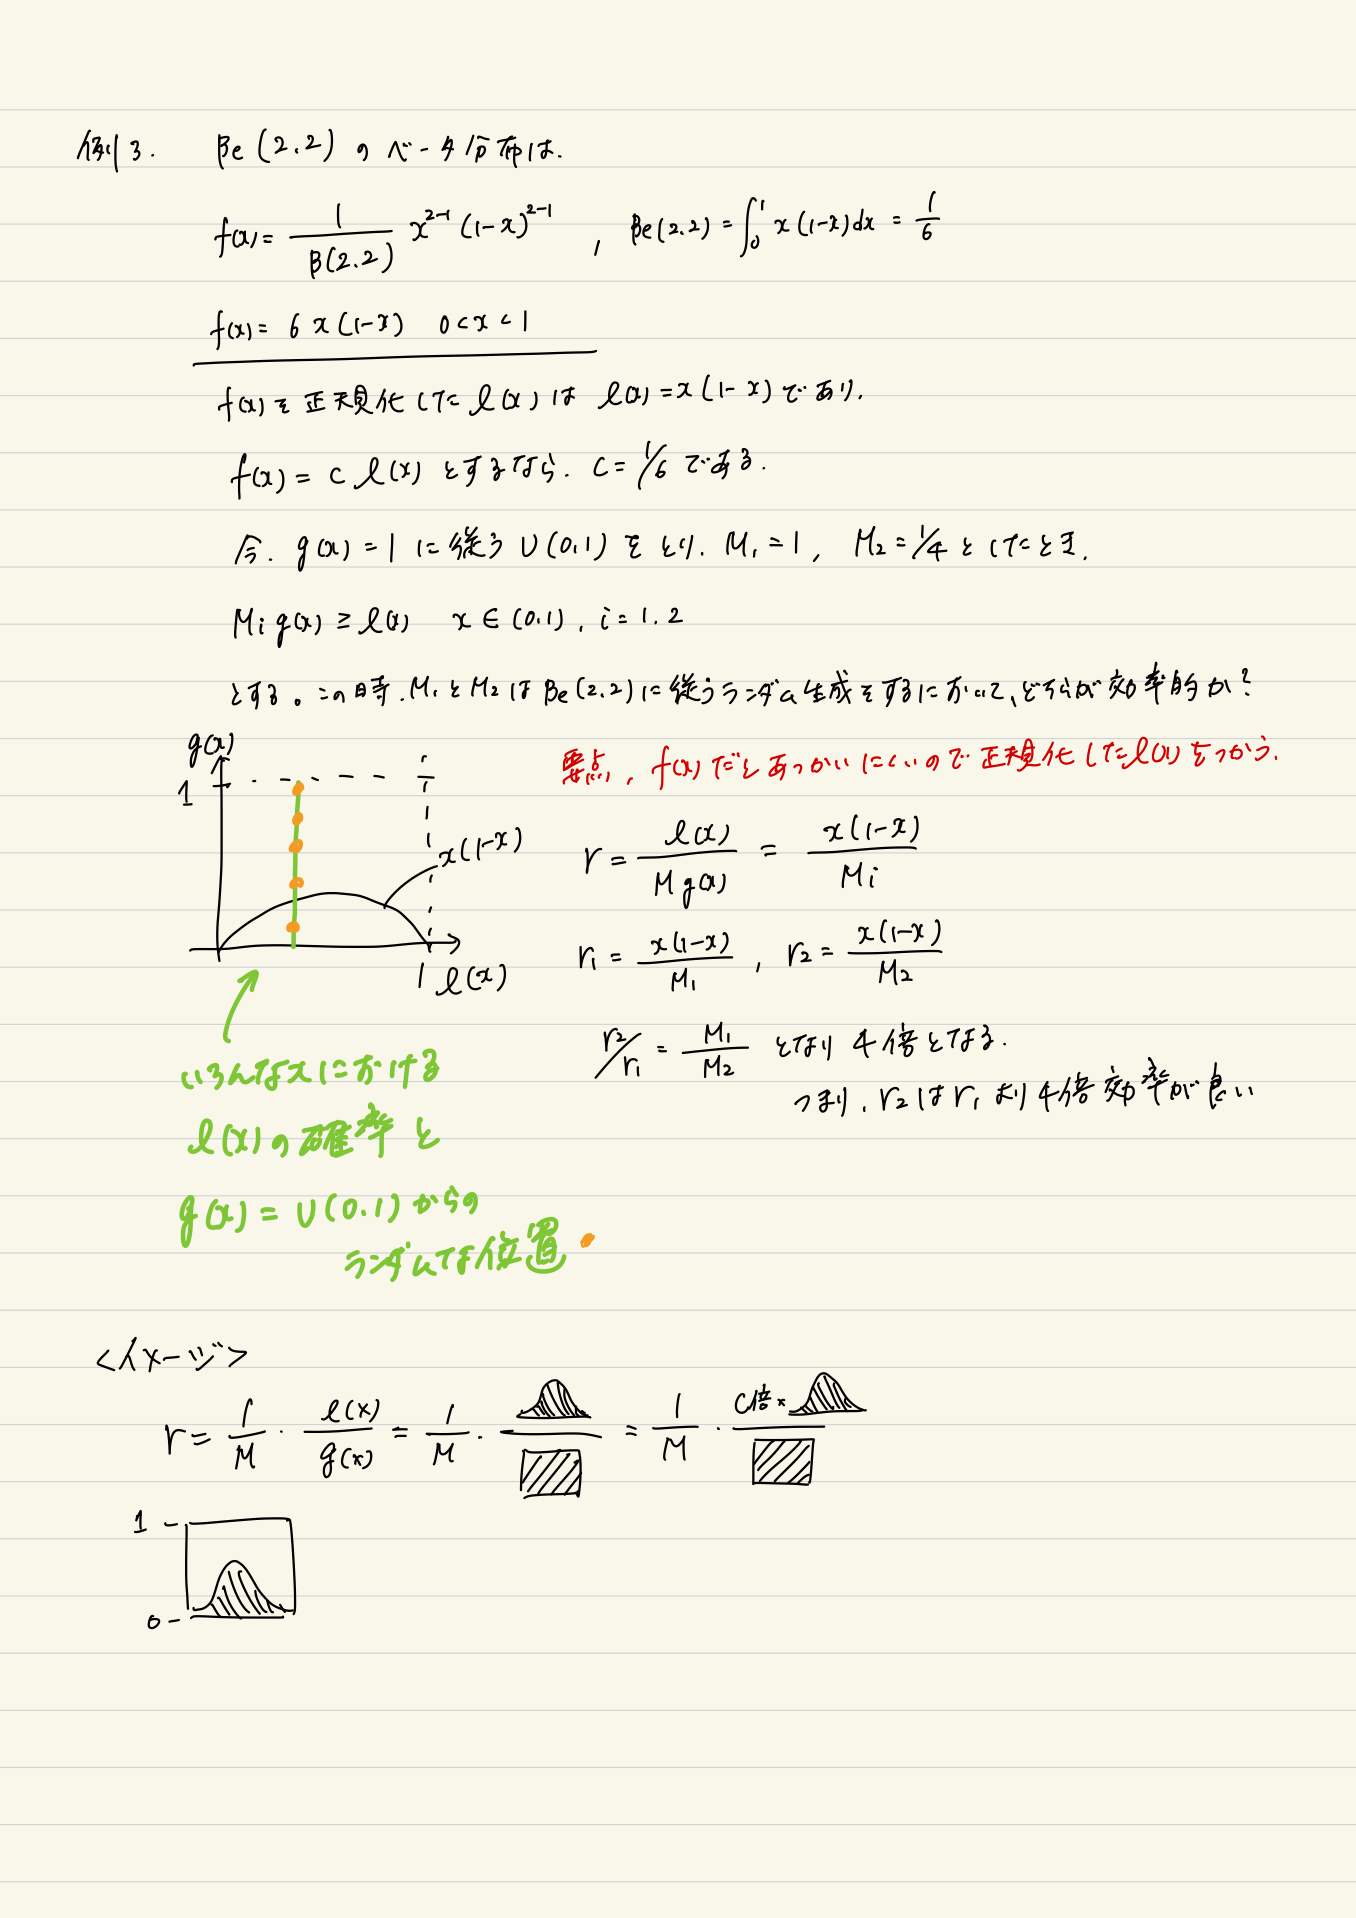 例3. Be(2.2)のベータ分布は.
f(x)= 1/B(2.2) x^{2-1}(1-x)^{2-1} , Be(2.2)=∫_0^1 x(1-x)dx = 1/6
f(x)= 6x(1-x) 0<x<1
f(x)を正規化したl(x)は l(x)=x(1-x)であり.
f(x)= c l(x) とするなら. c=1/6である.
今. g(x)=1に従うU(0.1)をとり. M₁=1, M₂=1/4としたとき.
Mi g(x)≥l(x) x∈(0.1), i=1.2
とする。この時.M₁とM₂はBe(2.2)に従うランダム生成をするにおいて、どちらが効率的か?
要点, f(x)だとあつかいにくいので正規化したl(x)をつかう.
g(x)
1
x(1-x)
1 l(x)
r= l(x)/M g(x) = x(1-x)/Mi
r₁= x(1-x)/M₁ , r₂= x(1-x)/M₂
r₂/r₁ = M₁/M₂ となり 4倍となる.
つまり, r₂はr₁より4倍効率が良い
いろんなxにおける
l(x)の確率と
g(x)=U(0.1)からの
ランダムな位置
<イメージ>
r= 1/M · l(x)/g(x) = 1/M · = 1/M · C倍×
1
0